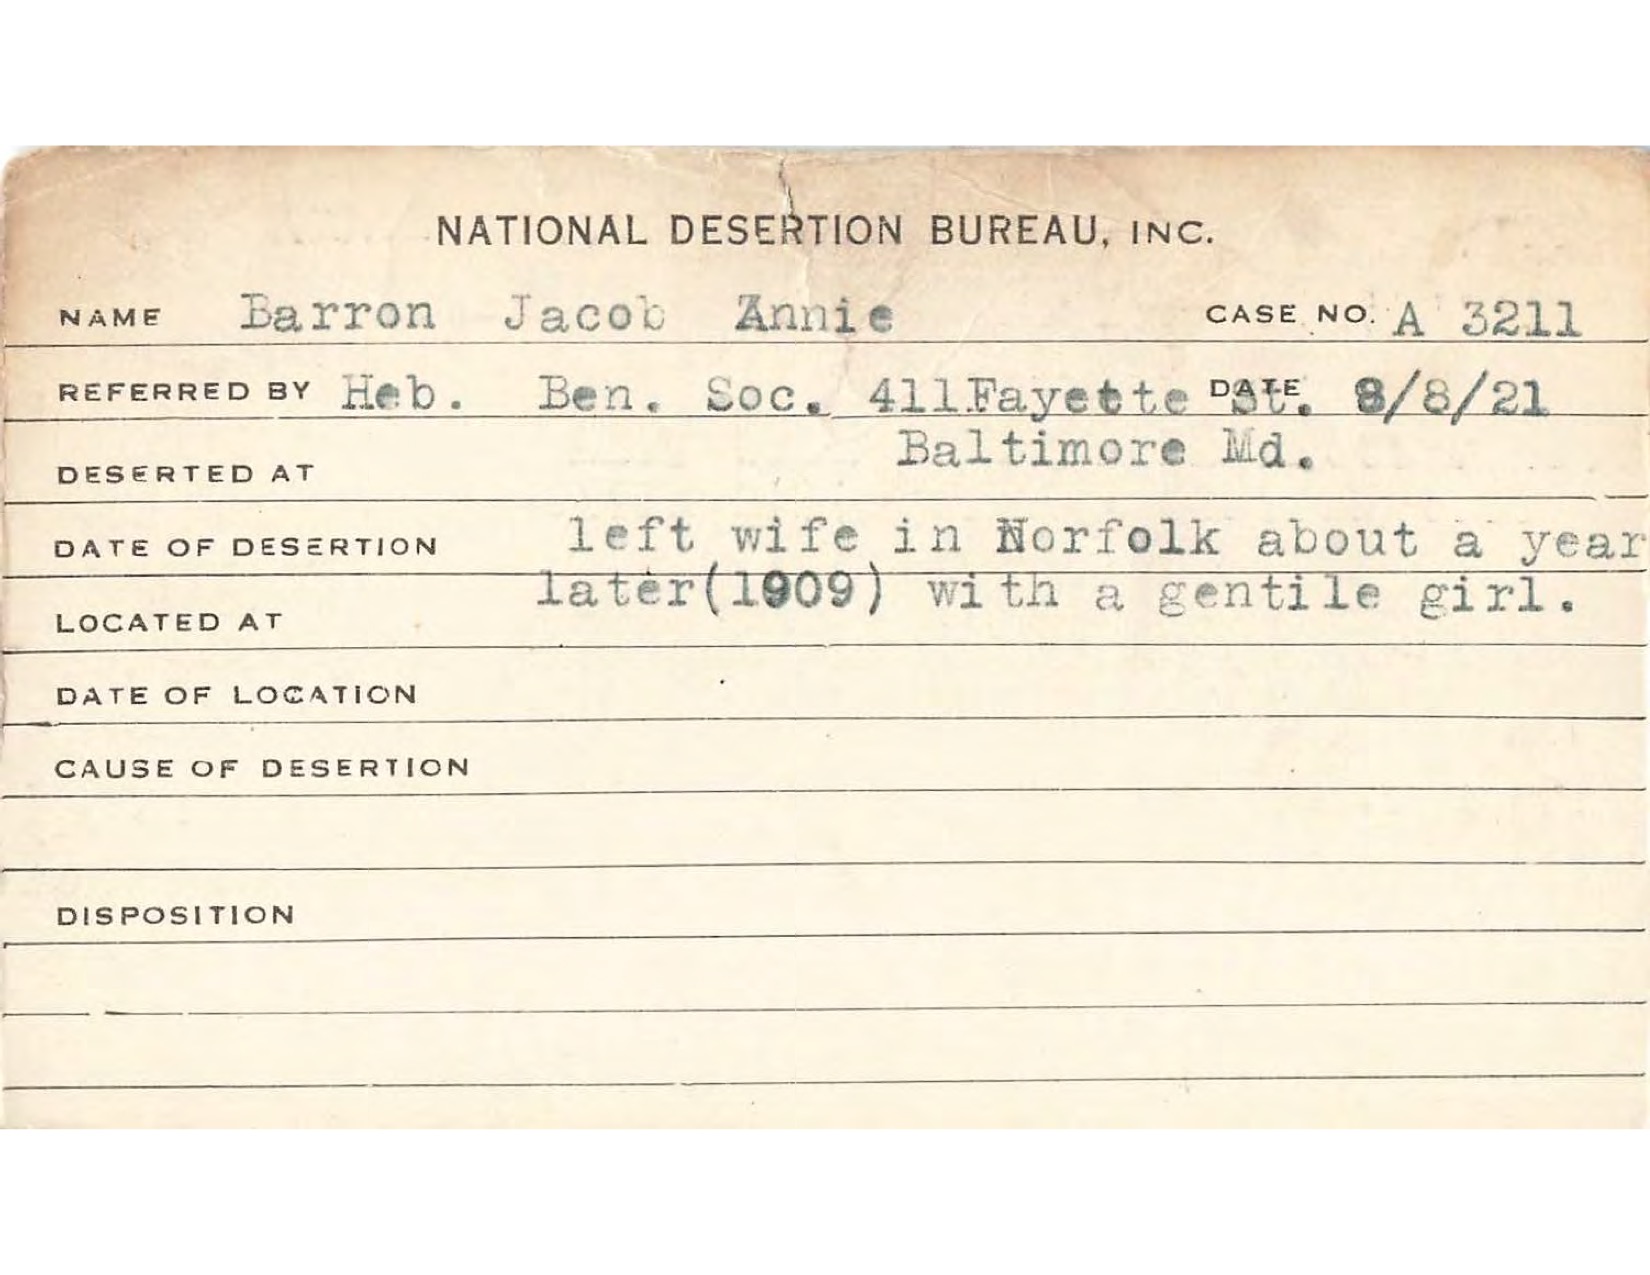 NATIONAL DESERTION BUREAU, INC.
NAME Barron Jacob Annie CASE NO. A 3211
REFERRED BY Heb. Ben. Soc. 411Fayette St. DATE 8/8/21
Baltimore Md.
DESERTED AT
DATE OF DESERTION left wife in Norfolk about a year
later(1909) with a gentile girl.
LOCATED AT
DATE OF LOCATION
CAUSE OF DESERTION
DISPOSITION